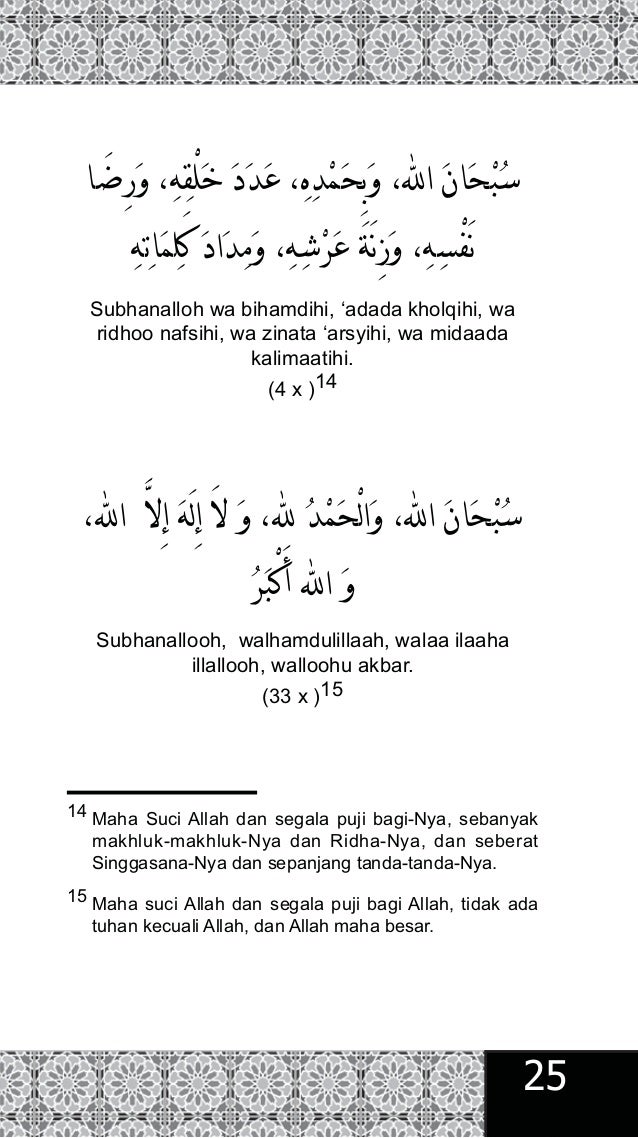 سُبْحَانَ الله، وَبِحَمْدِهِ، عَدَدَ خَلْقِهِ، وَرِضَا
نَفْسِهِ، وَزِنَةَ عَرْشِهِ، وَمِدَادَ كَلِمَاتِهِ
Subhanalloh wa bihamdihi, ‘adada kholqihi, wa
ridhoo nafsihi, wa zinata ‘arsyihi, wa midaada
kalimaatihi.
(4 x )14
سُبْحَانَ الله، وَالْحَمْدُ لِلهِ، وَ لَا إِلَهَ إِلَّا الله،
وَ الله أَكْبَرُ
Subhanallooh, walhamdulillaah, walaa ilaaha
illallooh, walloohu akbar.
(33 x )15
14 Maha Suci Allah dan segala puji bagi-Nya, sebanyak
makhluk-makhluk-Nya dan Ridha-Nya, dan seberat
Singgasana-Nya dan sepanjang tanda-tanda-Nya.
15 Maha suci Allah dan segala puji bagi Allah, tidak ada
tuhan kecuali Allah, dan Allah maha besar.
25